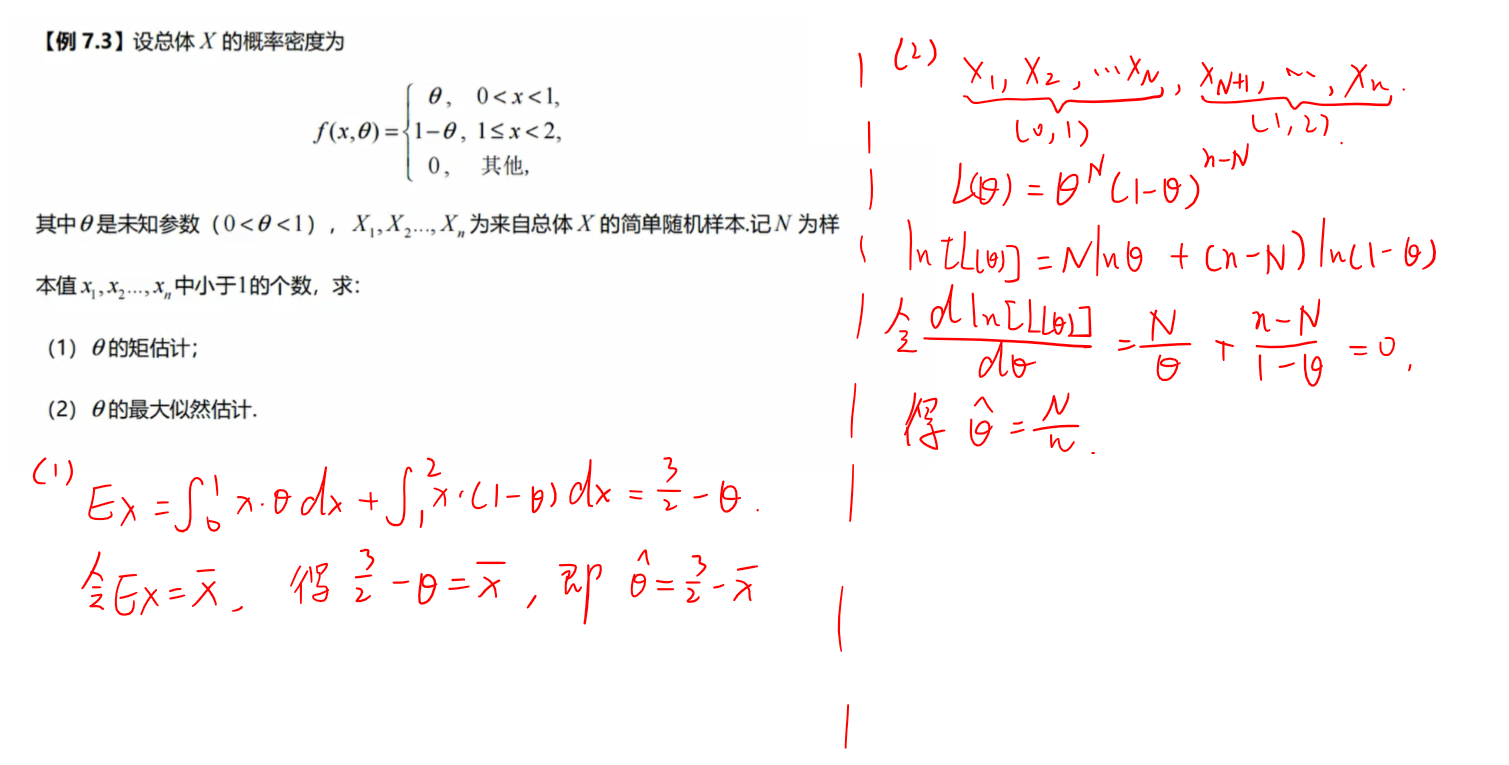 【例 7.3】设总体 X 的概率密度为
f(x,θ) = { θ, 0<x<1,
1−θ, 1≤x<2,
0, 其他,
其中θ是未知参数（0<θ<1），X₁,X₂...,Xₙ为来自总体 X 的简单随机样本.记 N 为样
本值 x₁,x₂...,xₙ 中小于1的个数，求：
（1）θ的矩估计；
（2）θ的最大似然估计.
(1) EX = ∫₀¹ x·θ dx + ∫₁² x·(1−θ) dx = 3/2 − θ.
令 EX = x̄, 得 3/2 − θ = x̄, 即 θ̂ = 3/2 − x̄
(2) X₁, X₂, ...X_N, X_{N+1}, ..., Xₙ.
(0,1) (1,2).
L(θ) = θ^N (1−θ)^{n−N}
ln[L(θ)] = N lnθ + (n−N) ln(1−θ)
令 d ln[L(θ)] / dθ = N/θ + (n−N)/(1−θ) = 0,
得 θ̂ = N/n.